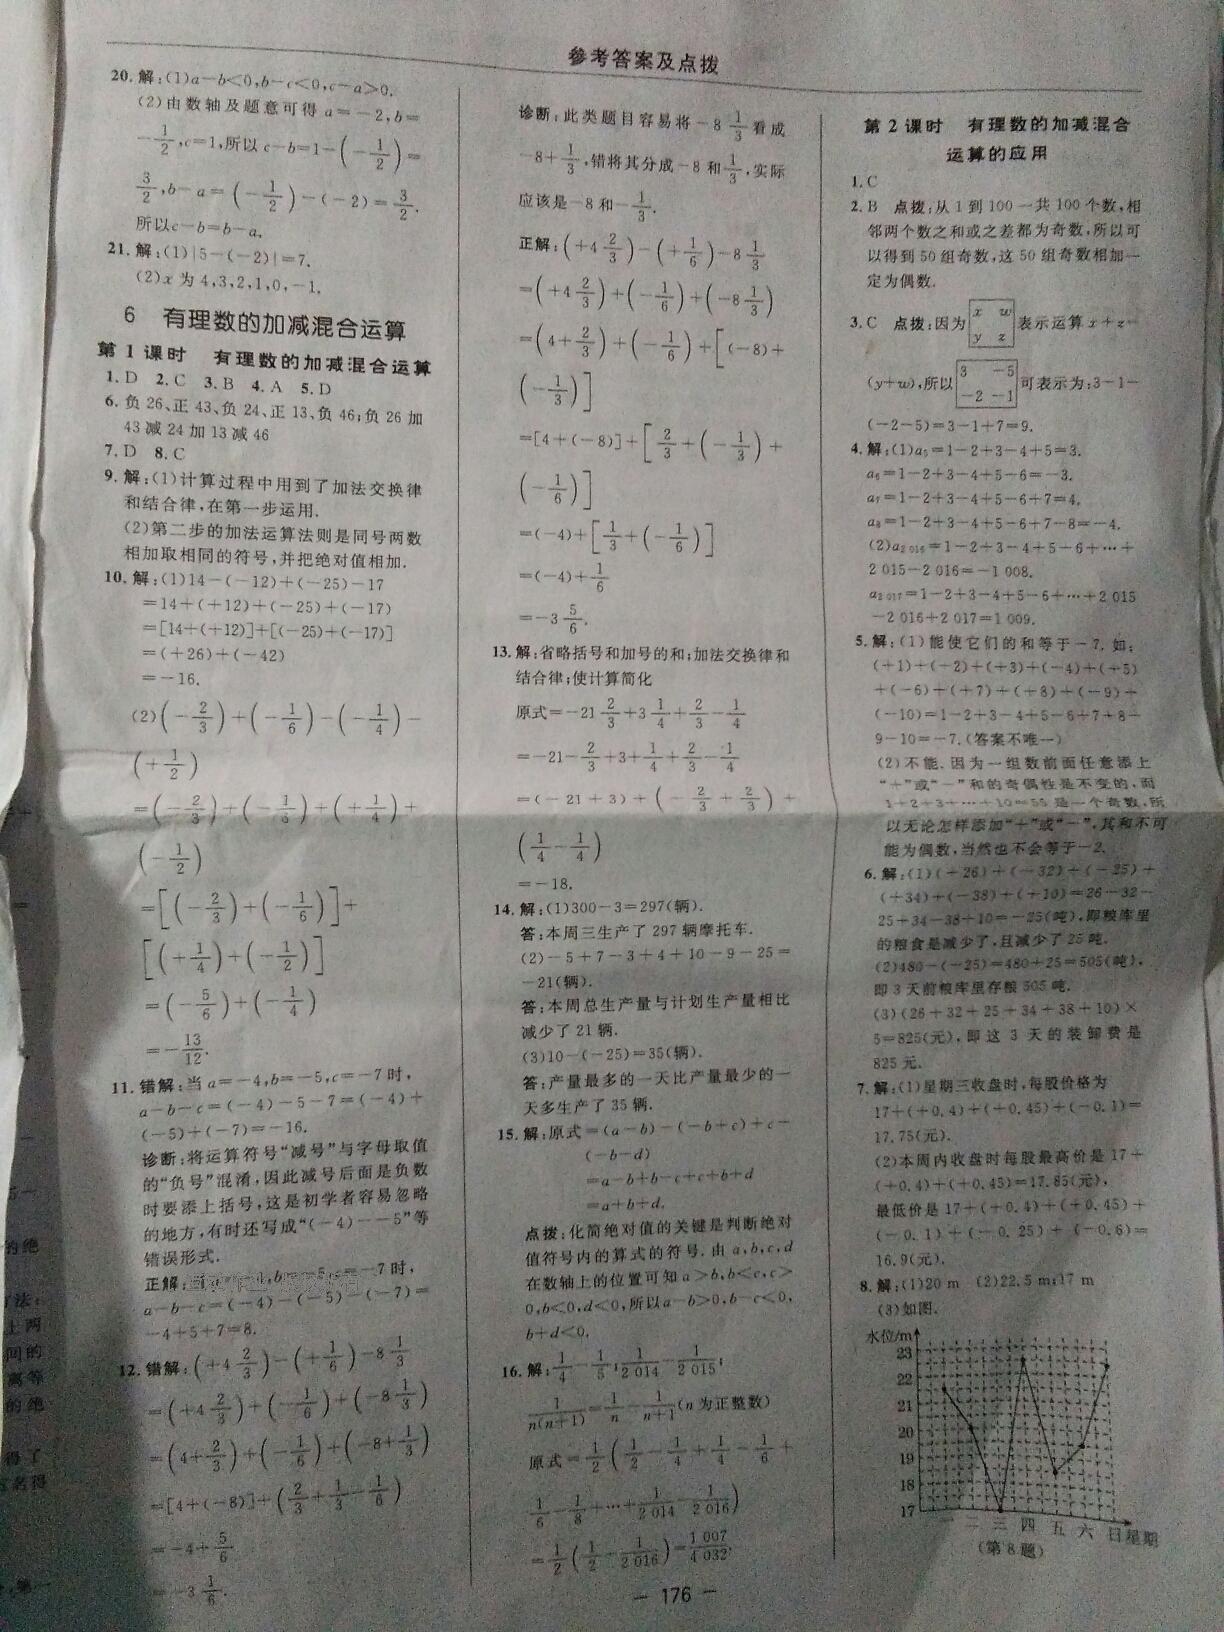 参考答案及点拨
20.解:(1)a-b<0,b-c<0,c-a>0.
(2)由数轴及题意可得 a=-2,b=
-1/2,c=1,所以 c-b=1-(-1/2)=
3/2,b-a=(-1/2)-(-2)=3/2.
所以c-b=b-a.
21.解:(1)|5-(-2)|=7.
(2)x 为 4,3,2,1,0,-1.
6 有理数的加减混合运算
第1课时 有理数的加减混合运算
1.D 2.C 3.B 4.A 5.D
6.负 26、正 43、负 24、正 13、负 46;负 26 加
43 减 24 加 13 减 46
7.D 8.C
9.解:(1)计算过程中用到了加法交换律
和结合律,在第一步运用.
(2)第二步的加法运算法则是同号两数
相加取相同的符号,并把绝对值相加.
10.解:(1)14-(-12)+(-25)-17
=14+(+12)+(-25)+(-17)
=[14+(+12)]+[(-25)+(-17)]
=(+26)+(-42)
=-16.
(2)(-2/3)+(-1/6)-(-1/4)-
(+1/2)
=(-2/3)+(-1/6)+(+1/4)+
(-1/2)
=[(-2/3)+(-1/6)]+
[(+1/4)+(-1/2)]
=(-5/6)+(-1/4)
=-13/12.
11.错解:当 a=-4,b=-5,c=-7 时,
a-b-c=(-4)-5-7=(-4)+
(-5)+(-7)=-16.
诊断:将运算符号“减号”与字母取值
的“负号”混淆,因此减号后面是负数
时要添上括号,这是初学者容易忽略
的地方,有时还写成“(-4)--5”等
错误形式.
正解:当 a=-4,b=-5,c=-7 时,
a-b-c=(-4)-(-5)-(-7)=
-4+5+7=8.
12.错解:(+4 2/3)-(+1/6)-8 1/3
=(+4 2/3)+(-1/6)+(-8 1/3)
=(4+2/3)+(-1/6)+(-8+1/3)
=[4+(-8)]+(2/3+1/3-1/6)
=-4+5/6
=-3 1/6.
诊断:此类题目容易将-8 1/3 看成
-8+1/3,错将其分成-8 和1/3,实际
应该是-8 和-1/3.
正解:(+4 2/3)-(+1/6)-8 1/3
=(+4 2/3)+(-1/6)+(-8 1/3)
=(4+2/3)+(-1/6)+[(-8)+
(-1/3)]
=[4+(-8)]+[2/3+(-1/3)+
(-1/6)]
=(-4)+[1/3+(-1/6)]
=(-4)+1/6
=-3 5/6.
13.解:省略括号和加号的和;加法交换律和
结合律;使计算简化
原式=-21 2/3+3 1/4+2/3-1/4
=-21-2/3+3+1/4+2/3-1/4
=(-21+3)+(-2/3+2/3)+
(1/4-1/4)
=-18.
14.解:(1)300-3=297(辆).
答:本周三生产了 297 辆摩托车.
(2)-5+7-3+4+10-9-25=
-21(辆).
答:本周总生产量与计划生产量相比
减少了 21 辆.
(3)10-(-25)=35(辆).
答:产量最多的一天比产量最少的一
天多生产了 35 辆.
15.解:原式=(a-b)-(-b+c)+c-
(-b-d)
=a-b+b-c+c+b+d
=a+b+d.
点拨:化简绝对值的关键是判断绝对
值符号内的算式的符号.由 a,b,c,d
在数轴上的位置可知 a>b,b<c,c>
0,b<0,d<0,所以a-b>0,b-c<0,
b+d<0.
16.解:1/4-1/5;1/2 014-1/2 015;
1/n(n+1)=1/n-1/n+1(n 为正整数)
原式=1/2(1/2-1/4+1/4-1/6+
1/6-1/8+…+1/2 014-1/2 016)
=1/2(1/2-1/2 016)=1 007/4 032.
第2课时 有理数的加减混合
运算的应用
1.C
2.B 点拨:从 1 到 100 一共 100 个数,相
邻两个数之和或之差都为奇数,所以可
以得到 50 组奇数,这 50 组奇数相加一
定为偶数.
3.C 点拨:因为 x w y z 表示运算 x+z-
(y+w),所以 3 -5 -2 -1 可表示为:3-1-
(-2-5)=3-1+7=9.
4.解:(1)a5=1-2+3-4+5=3.
a6=1-2+3-4+5-6=-3.
a7=1-2+3-4+5-6+7=4.
a8=1-2+3-4+5-6+7-8=-4.
(2)a2 016=1-2+3-4+5-6+…+
2 015-2 016=-1 008.
a2 017=1-2+3-4+5-6+…+2 015
-2 016+2 017=1 009.
5.解:(1)能使它们的和等于-7.如:
(+1)+(-2)+(+3)+(-4)+(+5)
+(-6)+(+7)+(+8)+(-9)+
(-10)=1-2+3-4+5-6+7+8-
9-10=-7.(答案不唯一)
(2)不能.因为一组数前面任意添上
“+”或“-”和的奇偶性是不变的,而
1+2+3+…+10=55 是一个奇数,所
以无论怎样添加“+”或“-”,其和不可
能为偶数,当然也不会等于-2.
6.解:(1)(+26)+(-32)+(-25)+
(+34)+(-38)+(+10)=26-32-
25+34-38+10=-25(吨),即粮库里
的粮食是减少了,且减少了 25 吨.
(2)480-(-25)=480+25=505(吨),
即 3 天前粮库里存粮 505 吨.
(3)(26+32+25+34+38+10)×
5=825(元),即这 3 天的装卸费是
825 元.
7.解:(1)星期三收盘时,每股价格为
17+(+0.4)+(+0.45)+(-0.1)=
17.75(元).
(2)本周内收盘时每股最高价是 17+
(+0.4)+(+0.45)=17.85(元),
最低价是 17+(+0.4)+(+0.45)+
(-0.1)+(-0.25)+(-0.6)=
16.9(元).
8.解:(1)20 m (2)22.5 m;17 m
(3)如图.
水位/m
23
22
21
20
19
18
17
一 二 三 四 五 六 日 星期
(第 8 题)
- 176 -